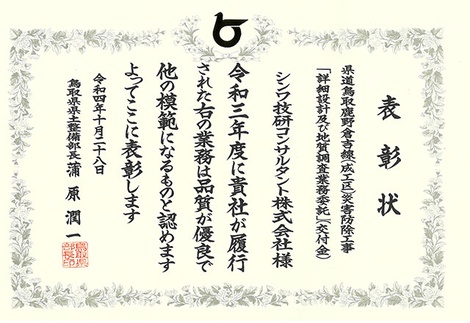 表彰状
県道鳥取鹿野倉吉線(成工区)災害防除工事
「詳細設計及び地質調査業務委託」(交付金)
シンワ技研コンサルタント株式会社様
令和三年度に貴社が履行
された右の業務は品質が優良で
他の模範になるものと認めます
よってここに表彰します
令和四年十月二十八日
鳥取県県土整備部長 蒲原潤一